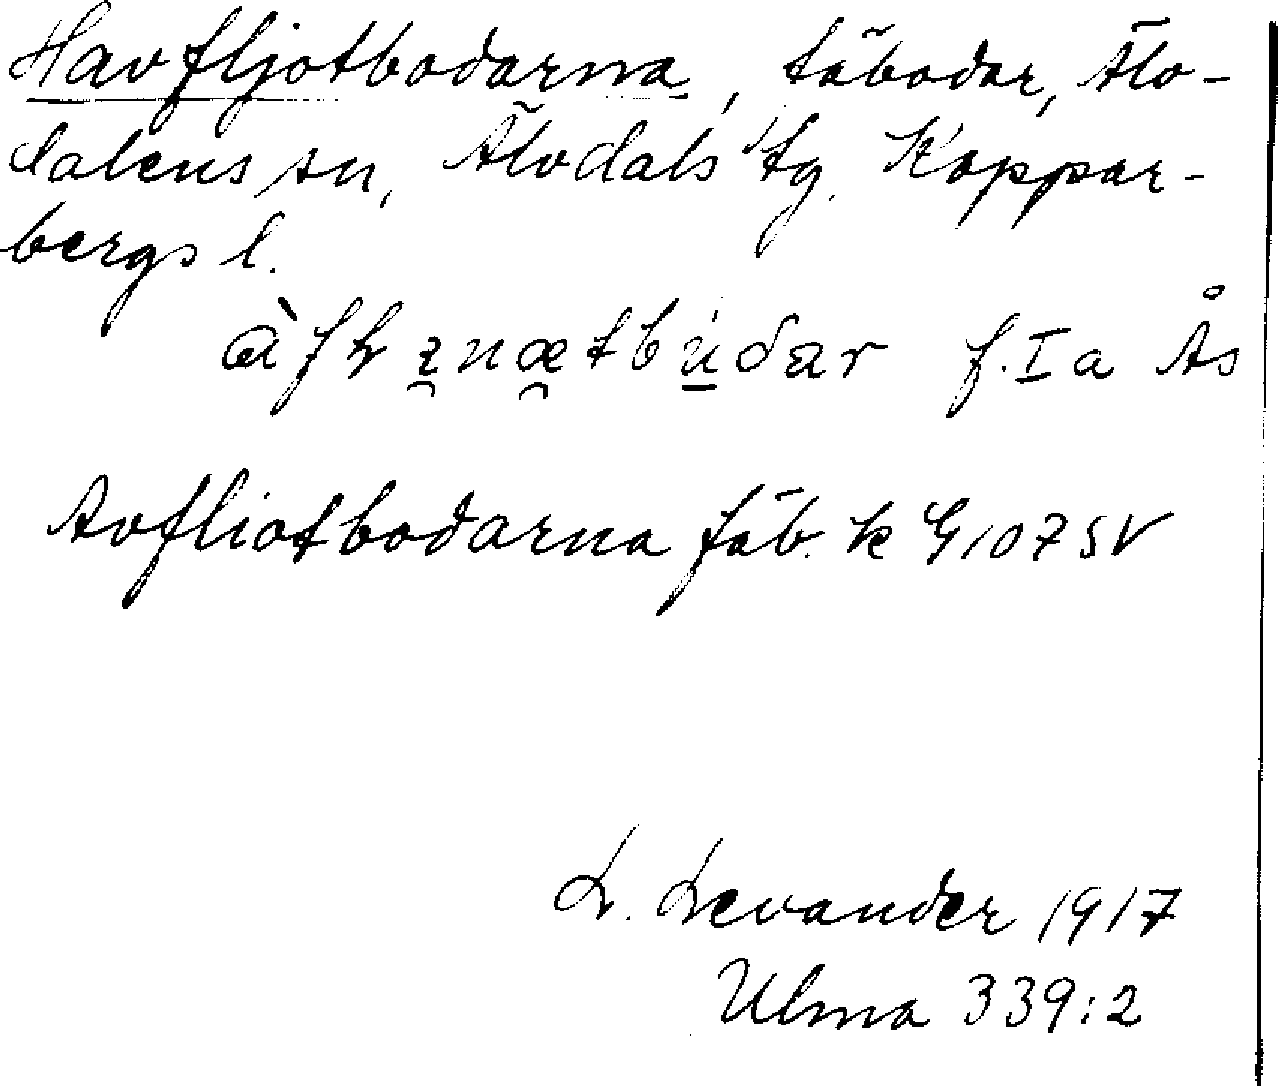 Havfljotbodarna, fäbodar, Älv-
dalens sn, Älvdals tg. Koppar-
bergs l.
f. I a Ås
Avfliotbodarna fäb. k G 107 SV
L. Levander 1917
Ulma 339:2